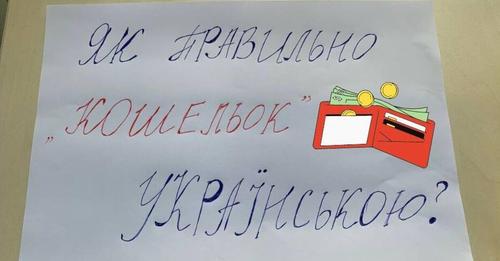 ЯК ПРАВИЛЬНО
„КОШЕЛЬОК”
УКРАЇНСЬКОЮ?